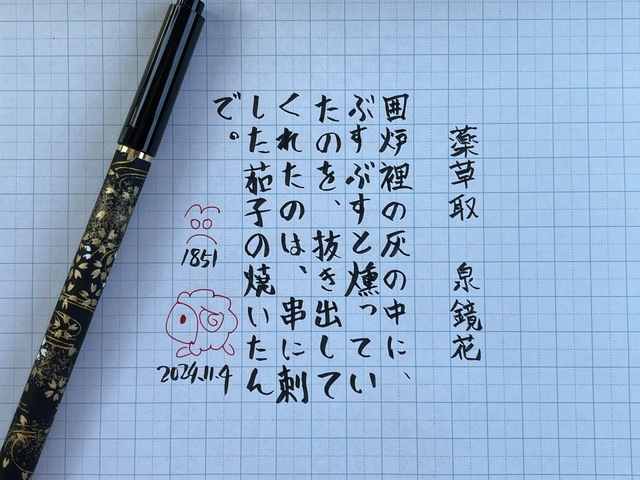 薬草取　泉鏡花
囲炉裡の灰の中に、
ぶすぶすと燻ってい
たのを、抜き出して
くれたのは、串に刺
した茄子の焼いたん
で。
1851
2024.11.4